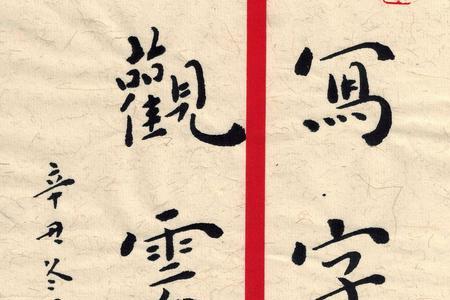 寫字
觀雲
辛丑冬